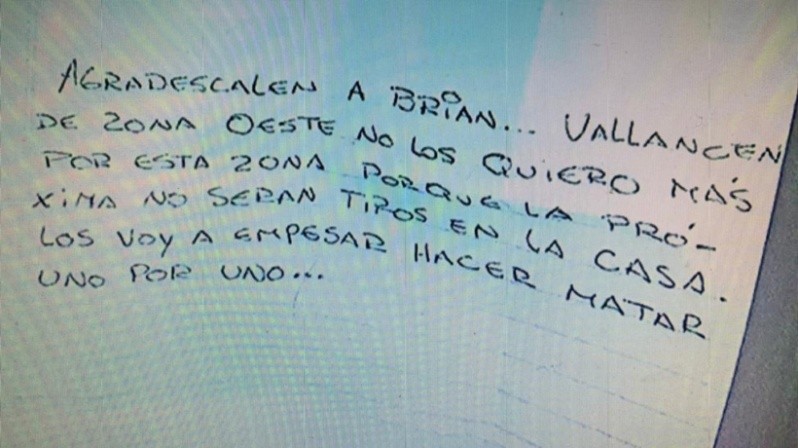 AGRADESCALEN A BRIAN... VALLANCEN
DE ZONA OESTE NO LOS QUIERO MÁS
POR ESTA ZONA PORQUE LA PRÓ-
XIMA NO SERAN TIROS EN LA CASA.
LOS VOY A EMPESAR HACER MATAR
UNO POR UNO...